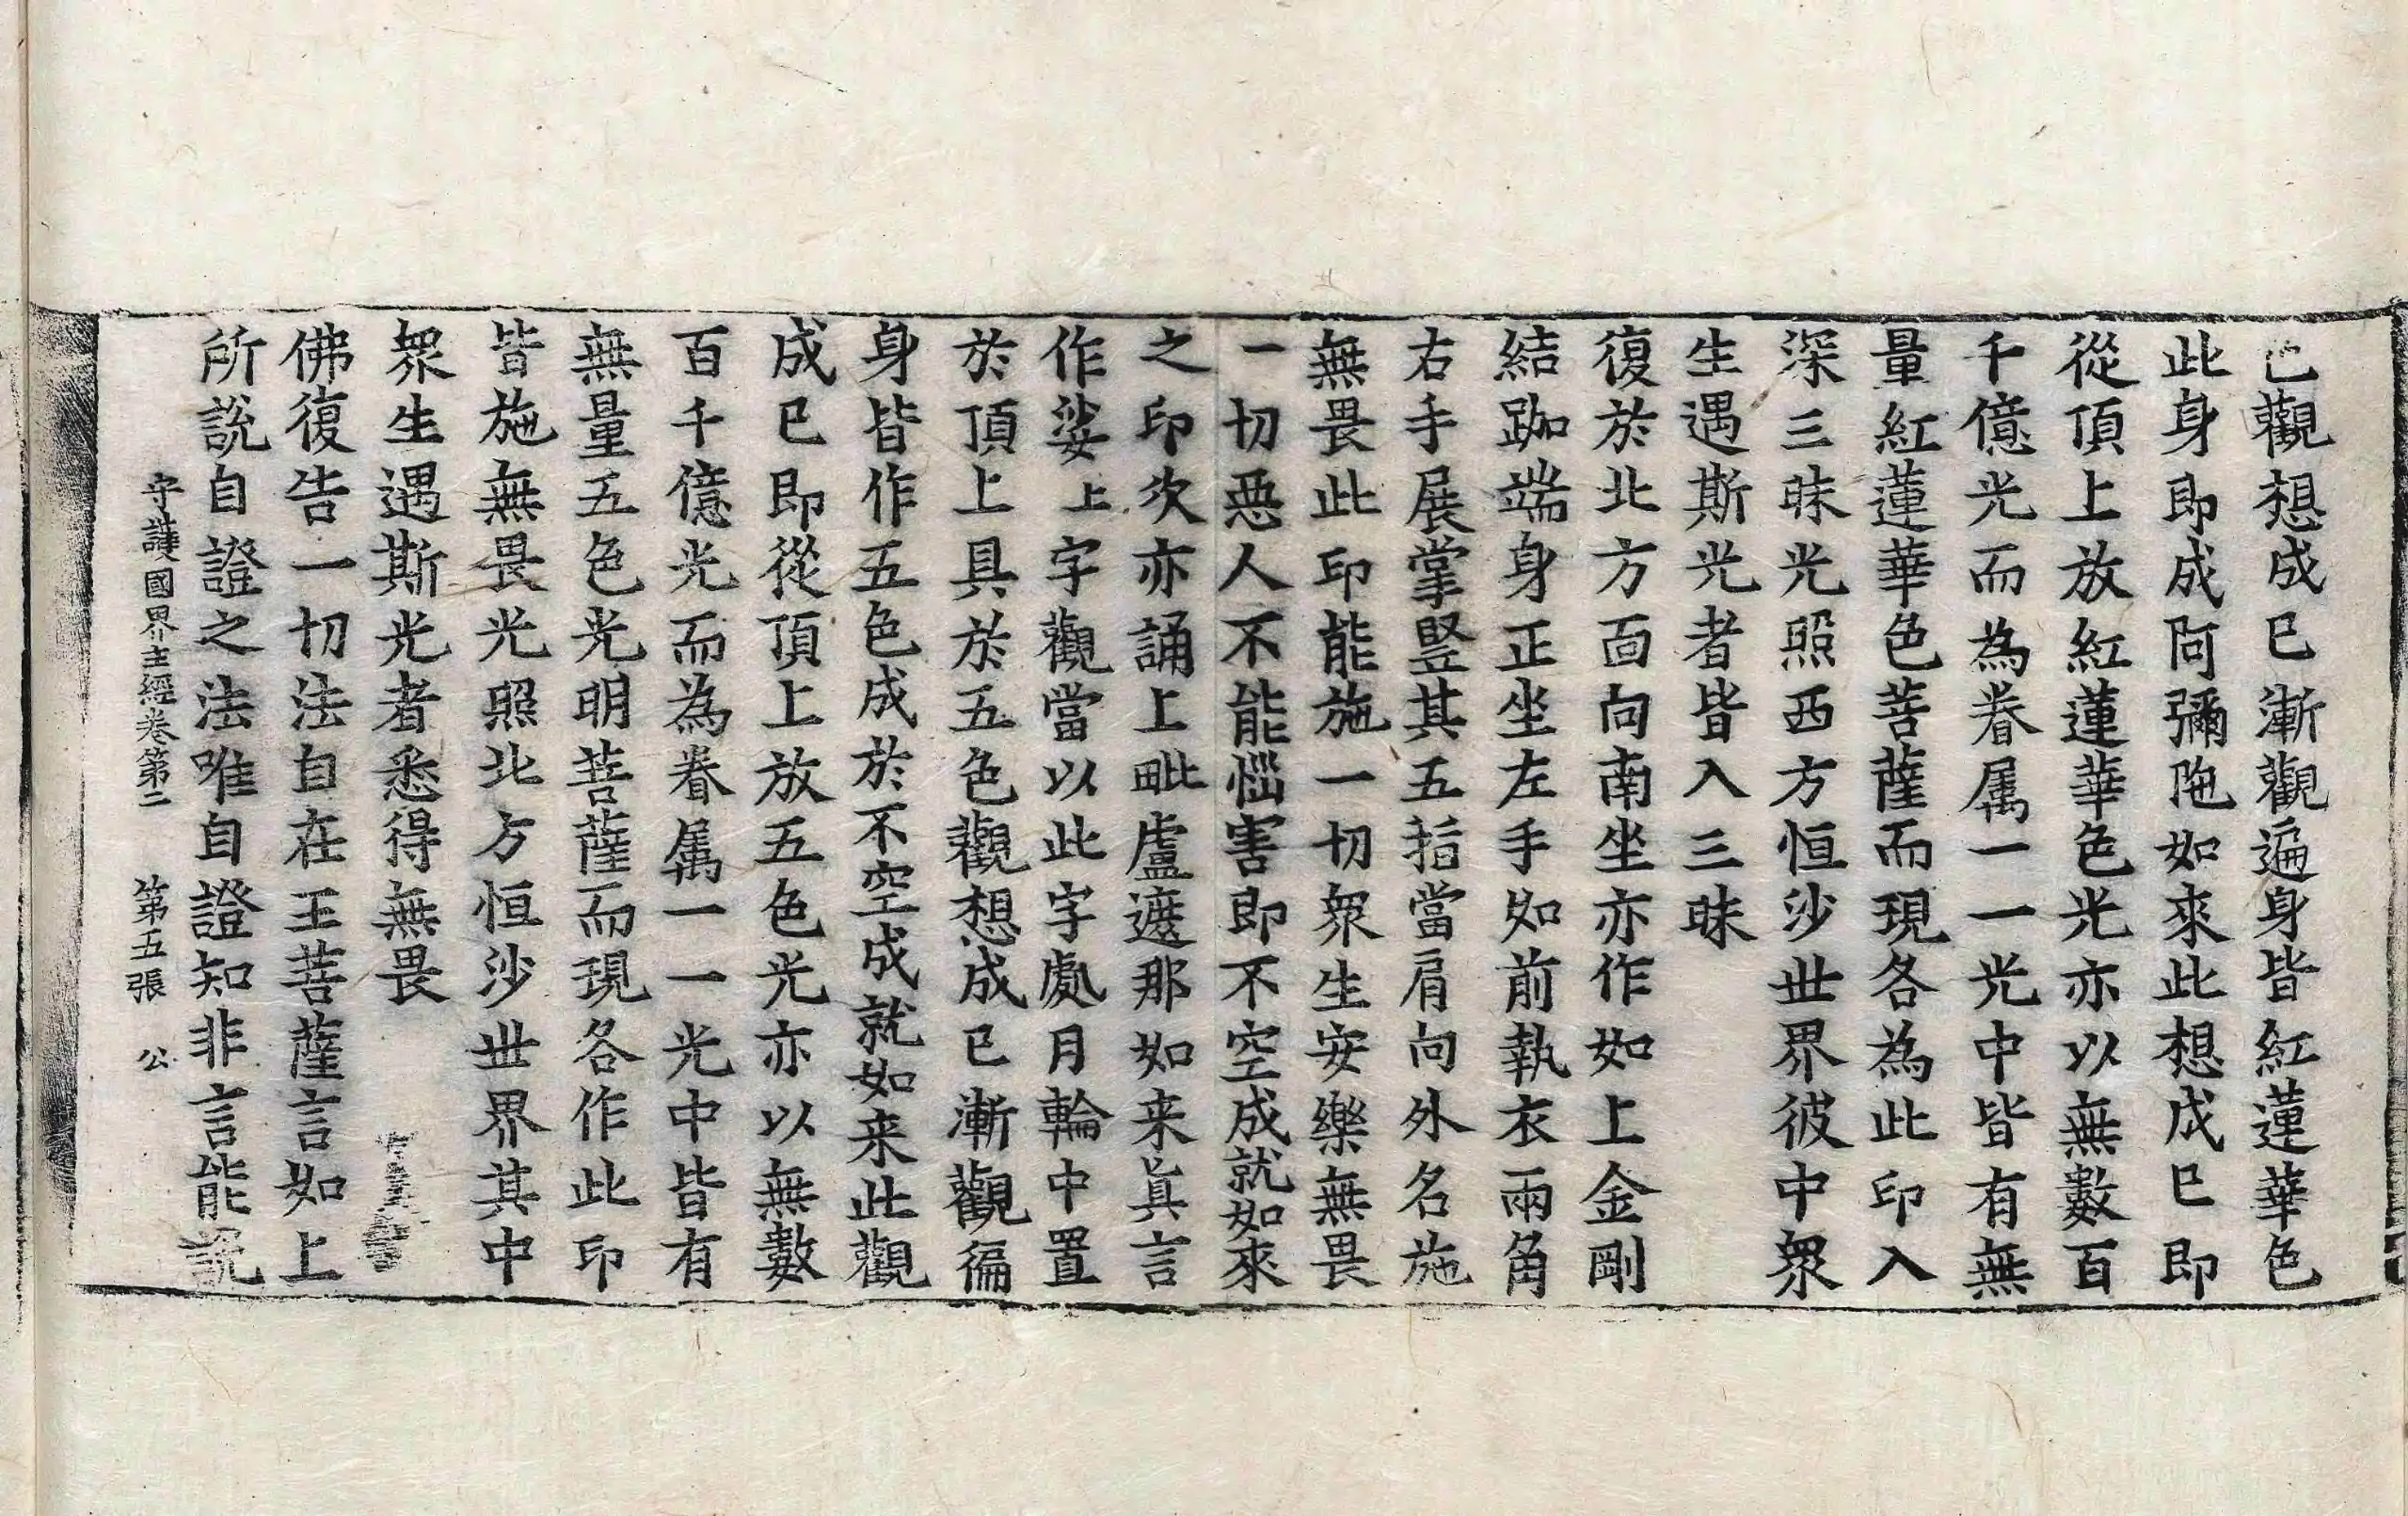 已觀想成已漸觀遍身皆紅蓮華色
此身即成阿彌陁如來此想成已即
從頂上放紅蓮華色光亦以無數百
千億光而為眷属一一光中皆有無
量紅蓮華色菩薩而現各為此印入
深三昧光照西方恒沙世界彼中衆
生遇斯光者皆入三昧
復於北方面向南坐亦作如上金剛
結跏端身正坐左手如前執衣兩角
右手展掌竪其五指當肩向外名施
無畏此印能施一切衆生安樂無畏
一切惡人不能惱害即不空成就如來
之印次亦誦上毗盧遮那如来真言
作娑上字觀當以此字處月輪中置
於頂上具於五色觀想成已漸觀徧
身皆作五色成於不空成就如来此觀
成已即從頂上放五色光亦以無數
百千億光而為眷属一一光中皆有
無量五色光明菩薩而現各作此印
皆施無畏光照北方恒沙世界其中
衆生遇斯光者悉得無畏
佛復告一切法自在王菩薩言如上
所說自證之法唯自證知非言能說
守護國界主經卷第二 第五張 公